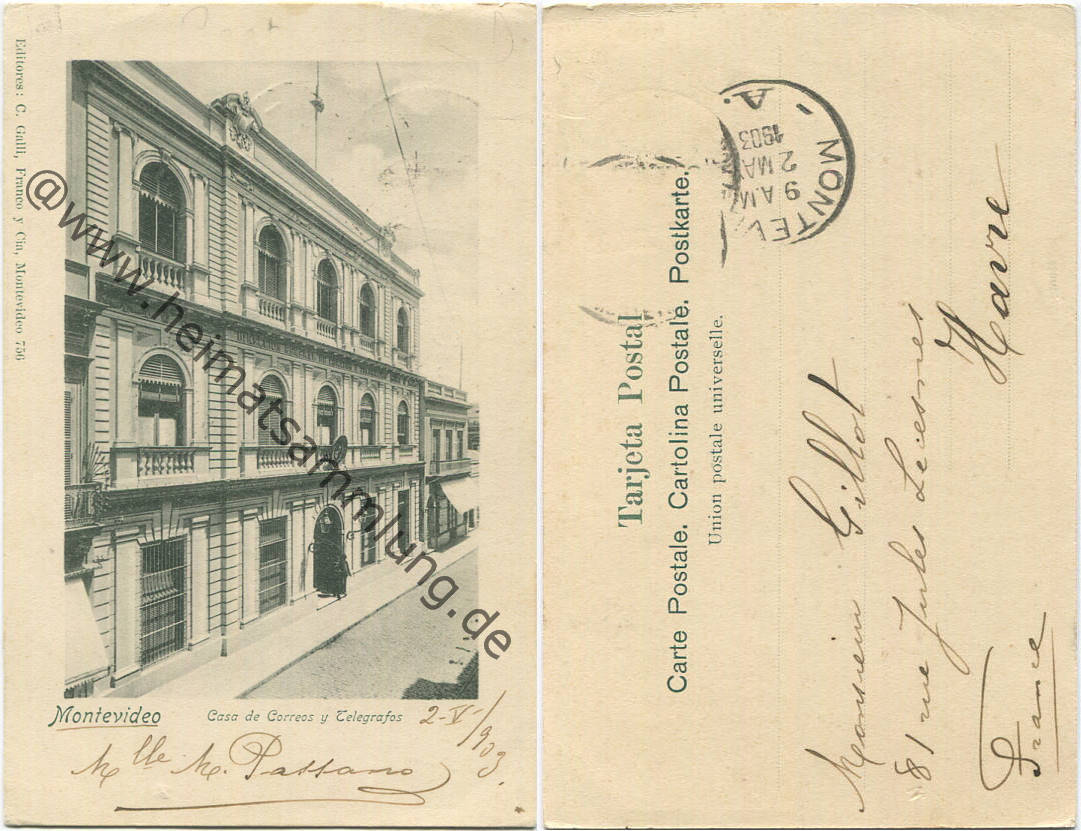 Editores: C. Galli, Franco y Cia, Montevideo 756
@www.heimatsammlung.de
Montevideo
Casa de Correos y Telegrafos
2-V-/903.
Mlle M. Passano
MONTEV
9 A.M
2 MAY
1903
A.
Tarjeta Postal
Carte Postale. Cartolina Postale. Postkarte.
Union postale universelle.
Monsieur Gillot
81 rue Jules Lecesnes
Havre
France